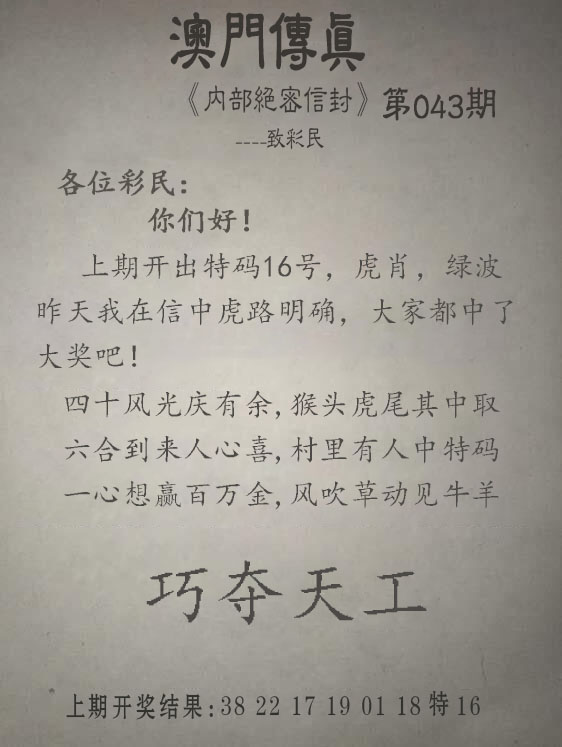 澳門傳眞
《内部絕密信封》第043期
----致彩民
各位彩民:
你们好!
上期开出特码16号,虎肖,绿波
昨天我在信中虎路明确,大家都中了
大奖吧!
四十风光庆有余,猴头虎尾其中取
六合到来人心喜,村里有人中特码
一心想赢百万金,风吹草动见牛羊
巧夺天工
上期开奖结果:38 22 17 19 01 18 特 16